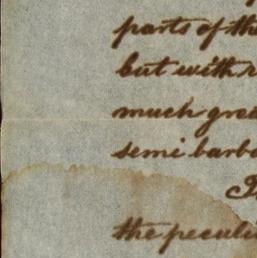 parts of the
but with r
much grea
semi barba
the peculi